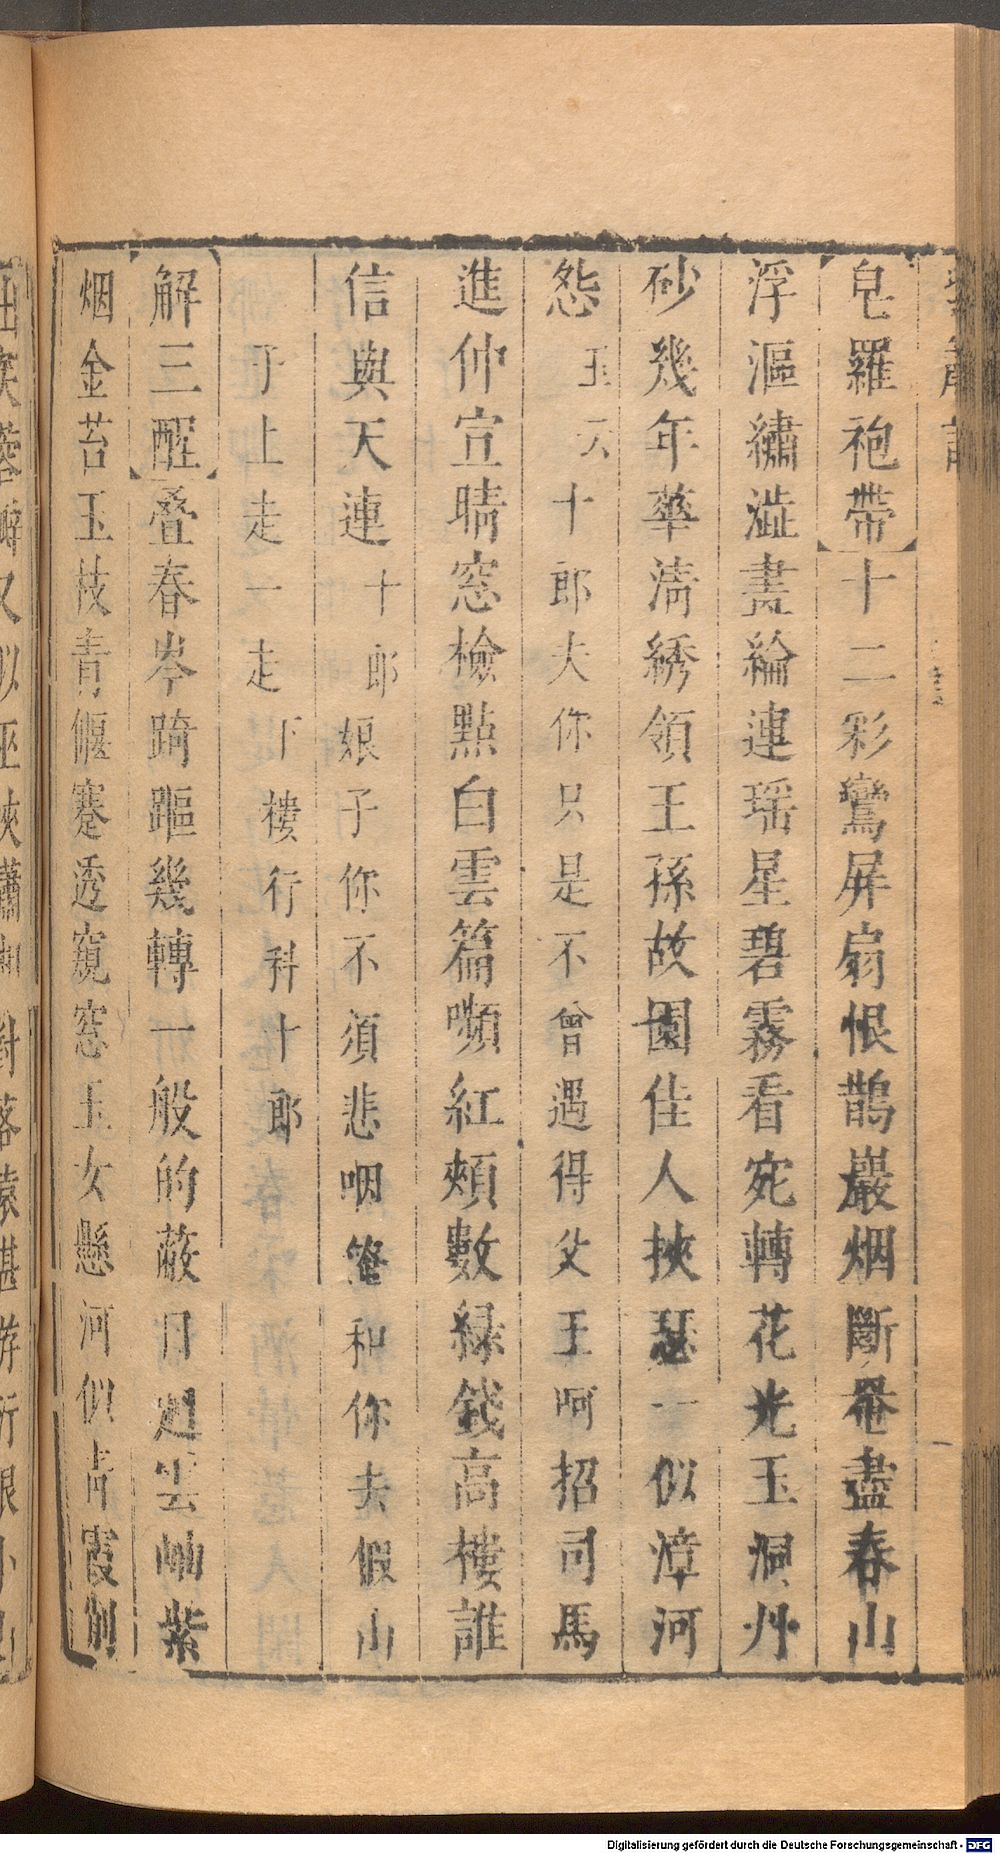 【皂羅袍帶】十二彩鸞屏扇恨鵲巖烟斷卷盡春山
浮漚繡澁畫綸連瑶星碧霧看宛轉花光玉洞丹
砂幾年華清綉領王孫故園佳人挾瑟一似漳河
怨 玉 天 十郎夫你只是不曾遇得父王呵招司馬
進仲宣晴窓檢點白雲篇嚬紅頰數緑錢高樓誰
信與天連 十郎娘子你不須悲咽 和你去假山
子上走一走下樓行科十郎
【解三酲】叠春岑踦䟣幾轉一般的蔽日 雲岫紫
烟金苔玉枝青偃蹇透窺窓玉女懸河似青霞削
Digitalisierung gefördert durch die Deutsche Forschungsgemeinschaft - DFG